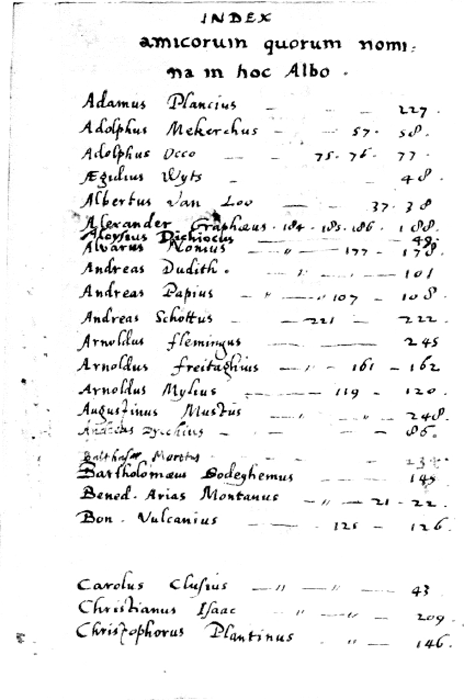 INDEX
amicorum quorum nomi:
na in hoc Albo.
Adamus Plancius — — — 227.
Adolphus Mekerchus — — 57. 58.
Adolphus Occo — — 75. 76. 77.
Ægidius Wyts — — 48.
Albertus Van Loo — 37. 38
Alexander Graphæus. 184. 185. 186. 188.
Aloysius
Alvarus Nonius — " — 177 — 178.
Andreas Dudith. — " — — 101
Andreas Papius — " — " 107 — 108.
Andreas Schottus — 221 — 222.
Arnoldus flemingus — — 245
Arnoldus freitaghius — " — 161 — 162
Arnoldus Mylius — — 119 — 120.
Augustinus Mustus — " — " — 248.
Andreas — — — 86.
Balthasar Moretus — —
Bartholomæus Bodeghemus — — 145
Bened. Arias Montanus — " — 21 — 22.
Bon. Vulcanius — — 125 — 126.
Carolus Clusius — " — " — 43
Christianus Isaac " — " — 209.
Christophorus Plantinus " — 146.